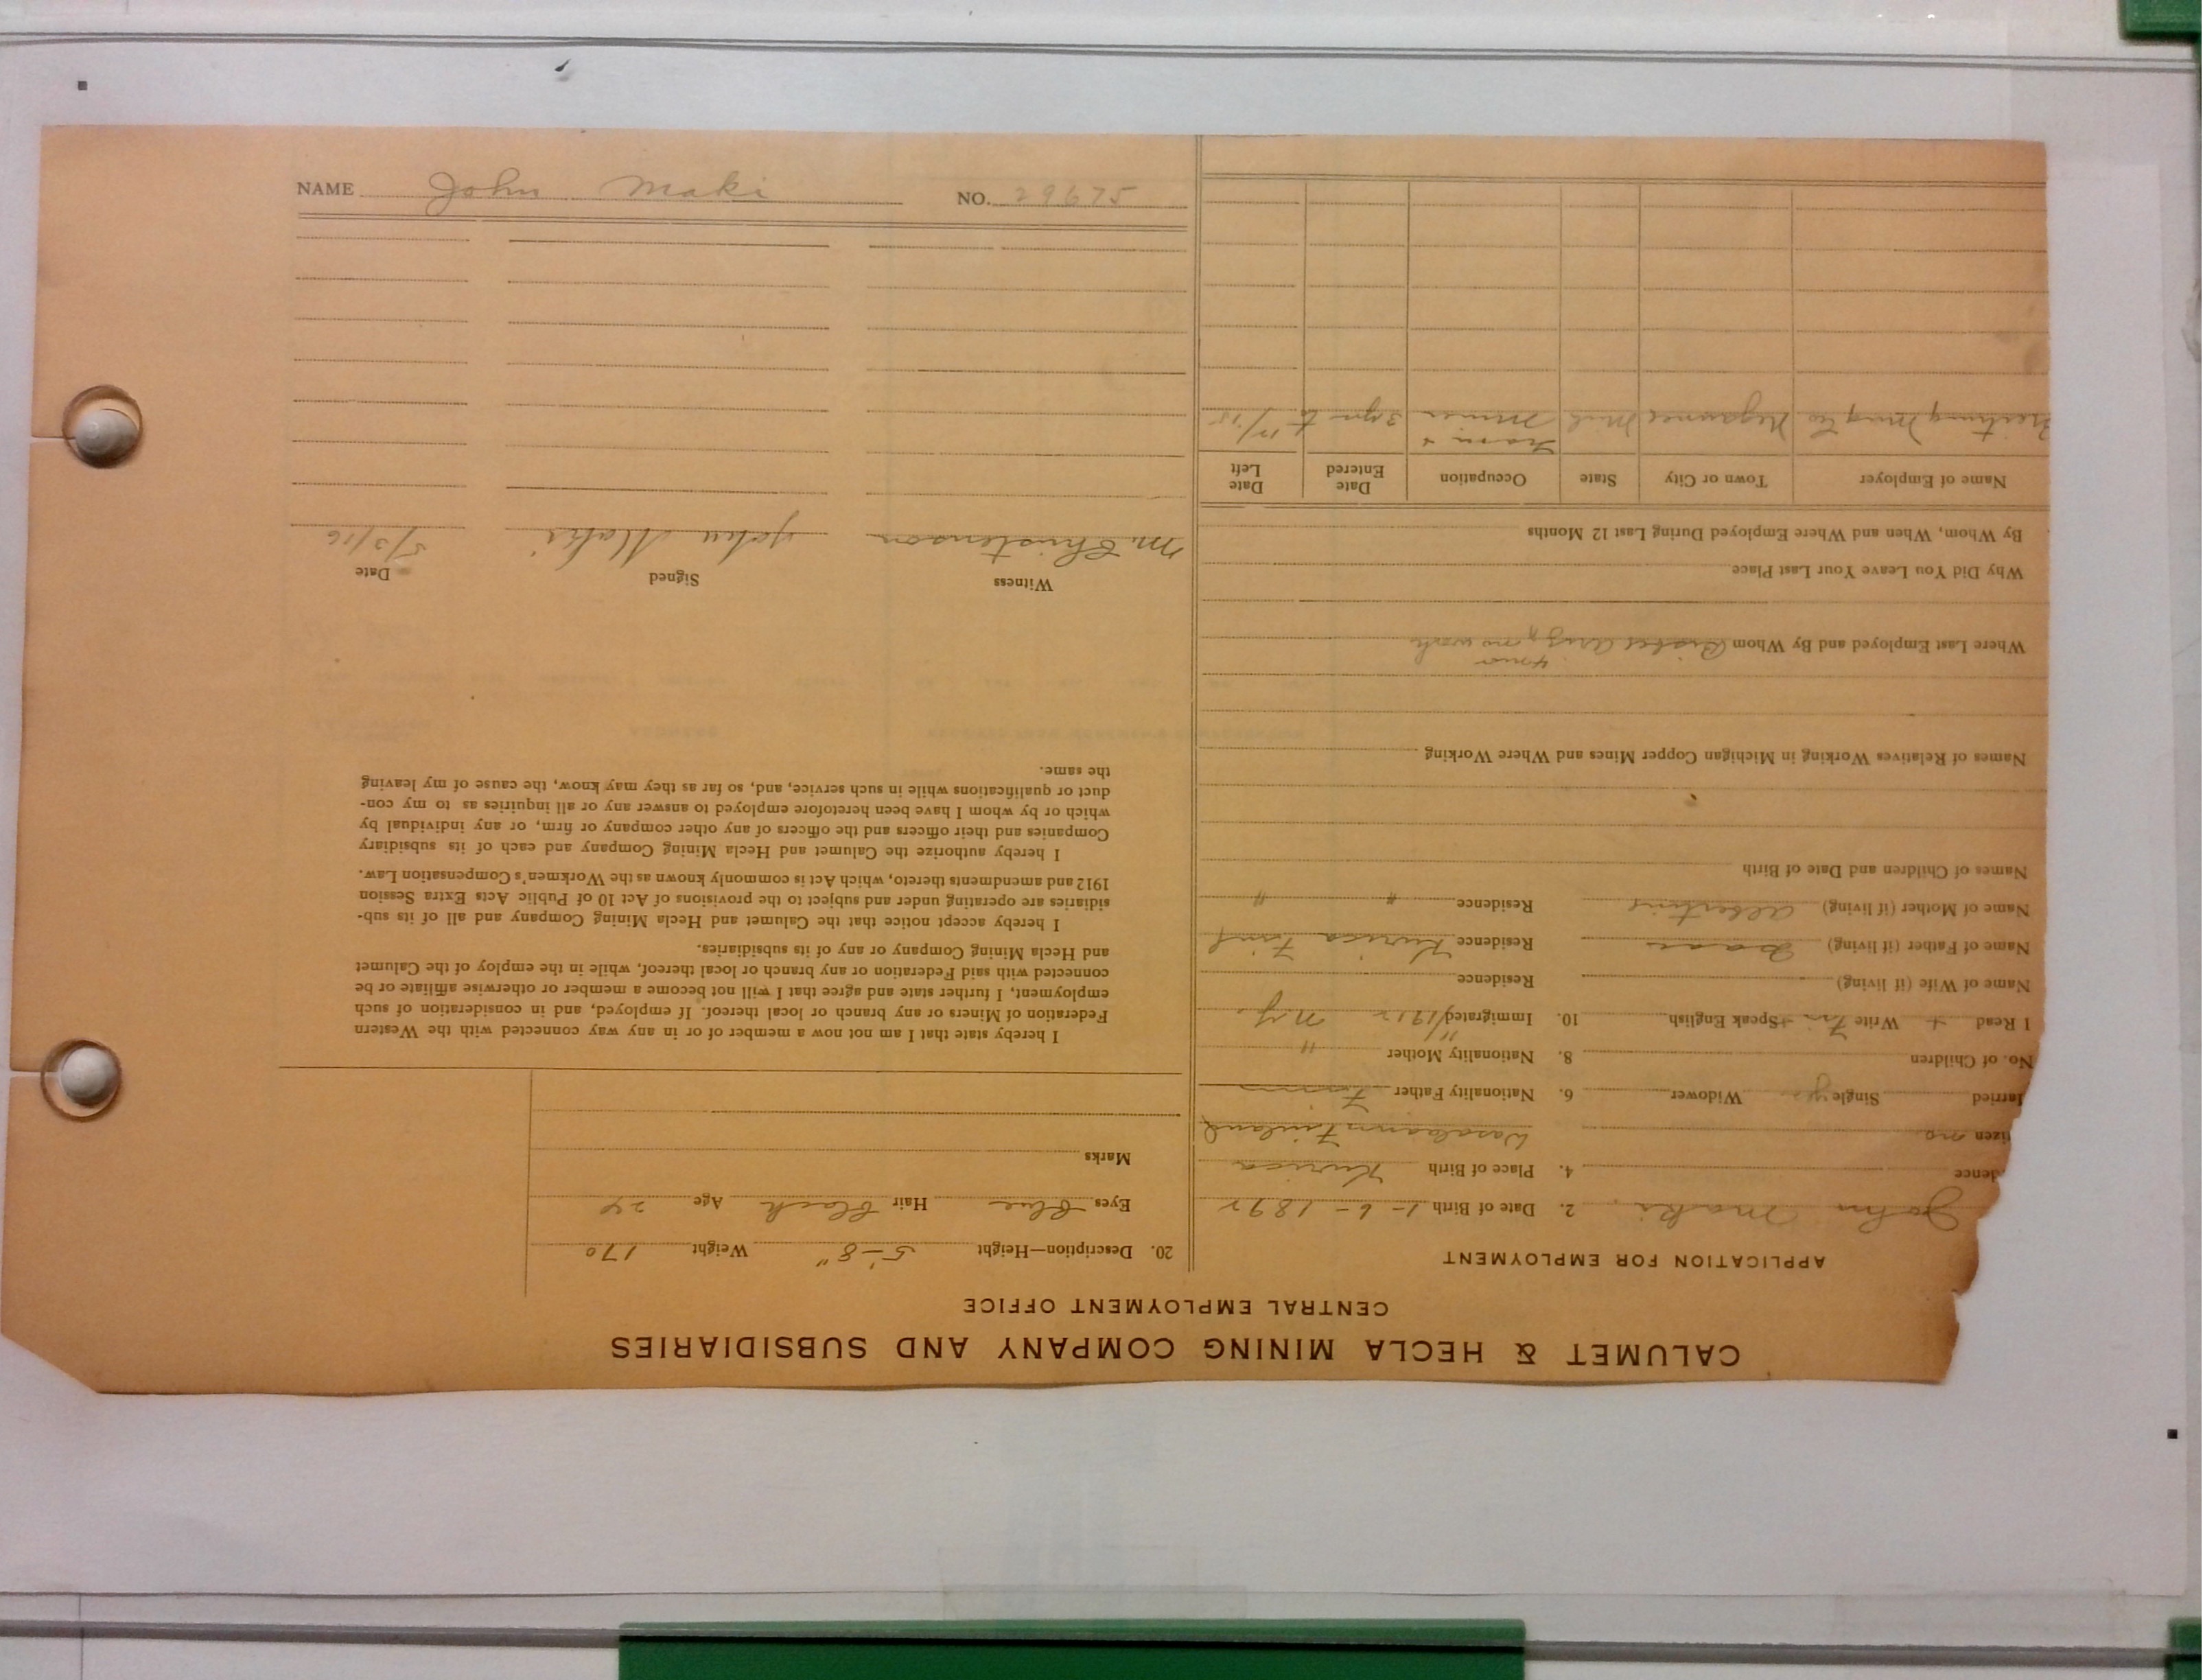 NAME John Maki NO. 29675
CALUMET & HECLA MINING COMPANY AND SUBSIDIARIES
CENTRAL EMPLOYMENT OFFICE
APPLICATION FOR EMPLOYMENT
John Maki 2. Date of Birth 1-6-1892
dence 4. Place of Birth Kurica
izen no Wasalaani Finland
arried Single yes Widower 6. Nationality Father Finn
No. of Children 8. Nationality Mother "
I Read + Write Fin + Speak English 10. Immigrated 11/1912 N.Y.
Name of Wife (if living) Residence
Name of Father (if living) Isaac Residence Kurica Finl
Name of Mother (if living) Albertina Residence " "
Names of Children and Date of Birth
Names of Relatives Working in Michigan Copper Mines and Where Working
4 mos
Where Last Employed and By Whom Bisbee Ariz, no work
Why Did You Leave Your Last Place
By Whom, When and Where Employed During Last 12 Months
Name of Employer Town or City State Occupation Date Entered Date Left
Tram +
Mng Co Negaunee Mich Miner 3 yrs to 12/15
20. Description—Height 5'-8" Weight 170
Eyes Blue Hair Black Age 24
Marks
I hereby state that I am not now a member of or in any way connected with the Western
Federation of Miners or any branch or local thereof. If employed, and in consideration of such
employment, I further state and agree that I will not become a member or otherwise affiliate or be
connected with said Federation or any branch or local thereof, while in the employ of the Calumet
and Hecla Mining Company or any of its subsidiaries.
I hereby accept notice that the Calumet and Hecla Mining Company and all of its sub-
sidiaries are operating under and subject to the provisions of Act 10 of Public Acts Extra Session
1912 and amendments thereto, which Act is commonly known as the Workmen's Compensation Law.
I hereby authorize the Calumet and Hecla Mining Company and each of its subsidiary
Companies and their officers and the officers of any other company or firm, or any individual by
which or by whom I have been heretofore employed to answer any or all inquiries as to my con-
duct or qualifications while in such service, and, so far as they may know, the cause of my leaving
the same.
Witness Signed Date
M. Christenson John Maki 5/3/16